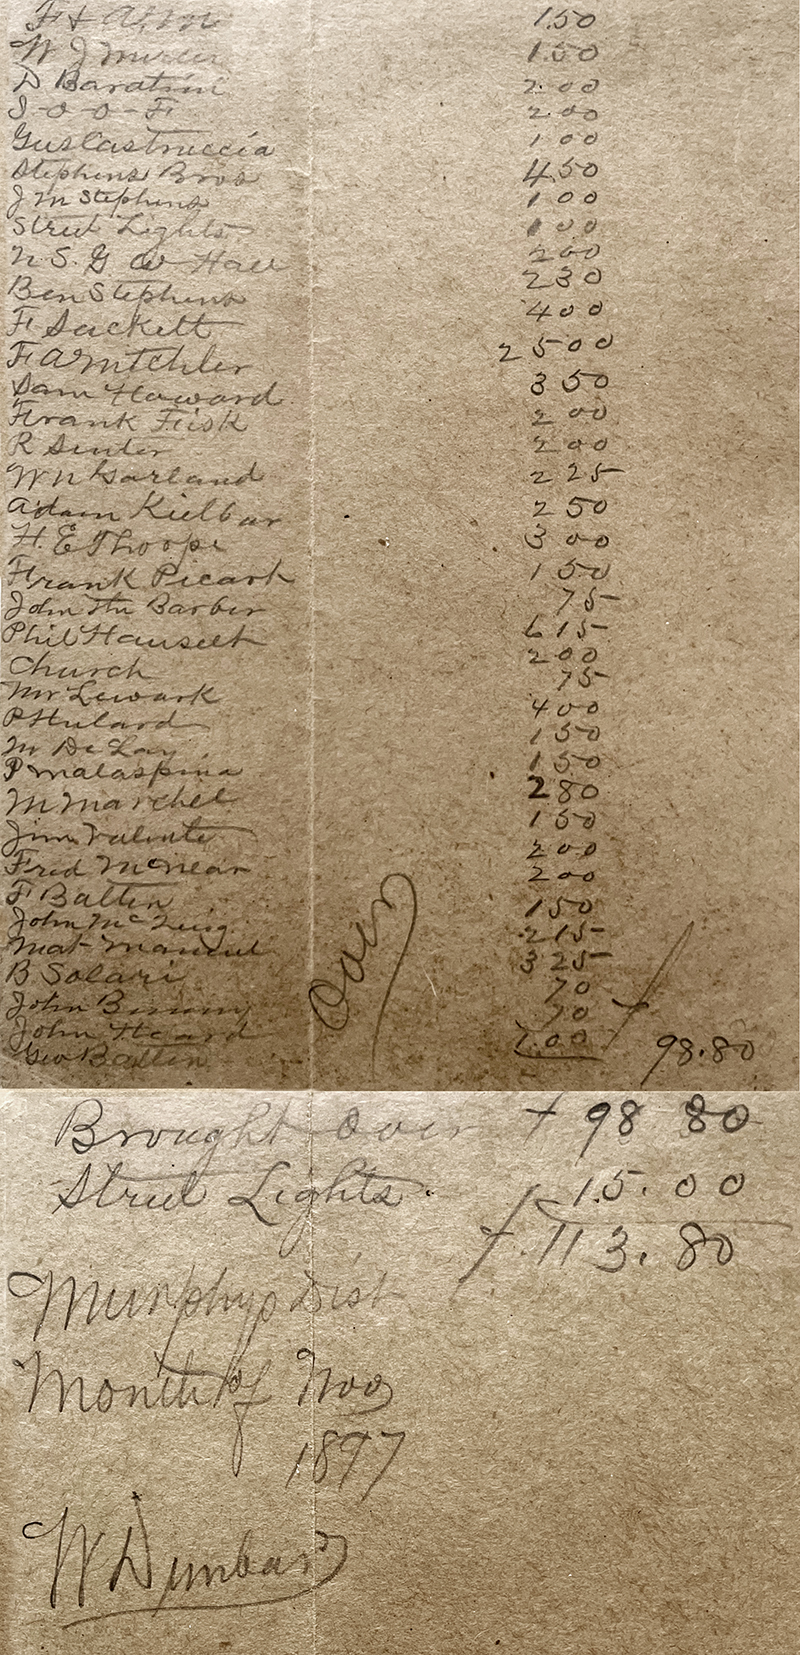 F & A.M 1.50
W J Mercer 1.50
D Baratini 2 00
I-O-O-F 2 00
Gus Castruccia 1 00
Stephens Bros 4.50
J M Stephens 1 00
Street Lights 1 00
N. S. G W Hall 2 00
Ben Stephens 2 30
F Sackett 4 00
F A Mitchler 25 00
Sam Howard 3 50
Frank Fisk 2 00
R Senter 2 00
W N Garland 2 25
Adam Kielbar 2 50
H. E Thorpe 3 00
Frank Picark 1 50
John Barber 75
Phil Hauselt 6 15
Church 2 00
Mr Lewark 75
P Hulard 4 00
M De Lay 1 50
P Malaspina 1 50
M Marchel 2 80
Jim Valente 1 50
Fred McNear 2 00
F Balten 2 00
John 1 50
Mat Manuel 2 15
B Solari 3 25
John 70
John Heard 70
Geo Baltin 1.00
Over
98.80
Brought Over 98 80
Street Lights. 15.00
113.80
Murphys Dist
Month of Nov
1897
W Dunbar